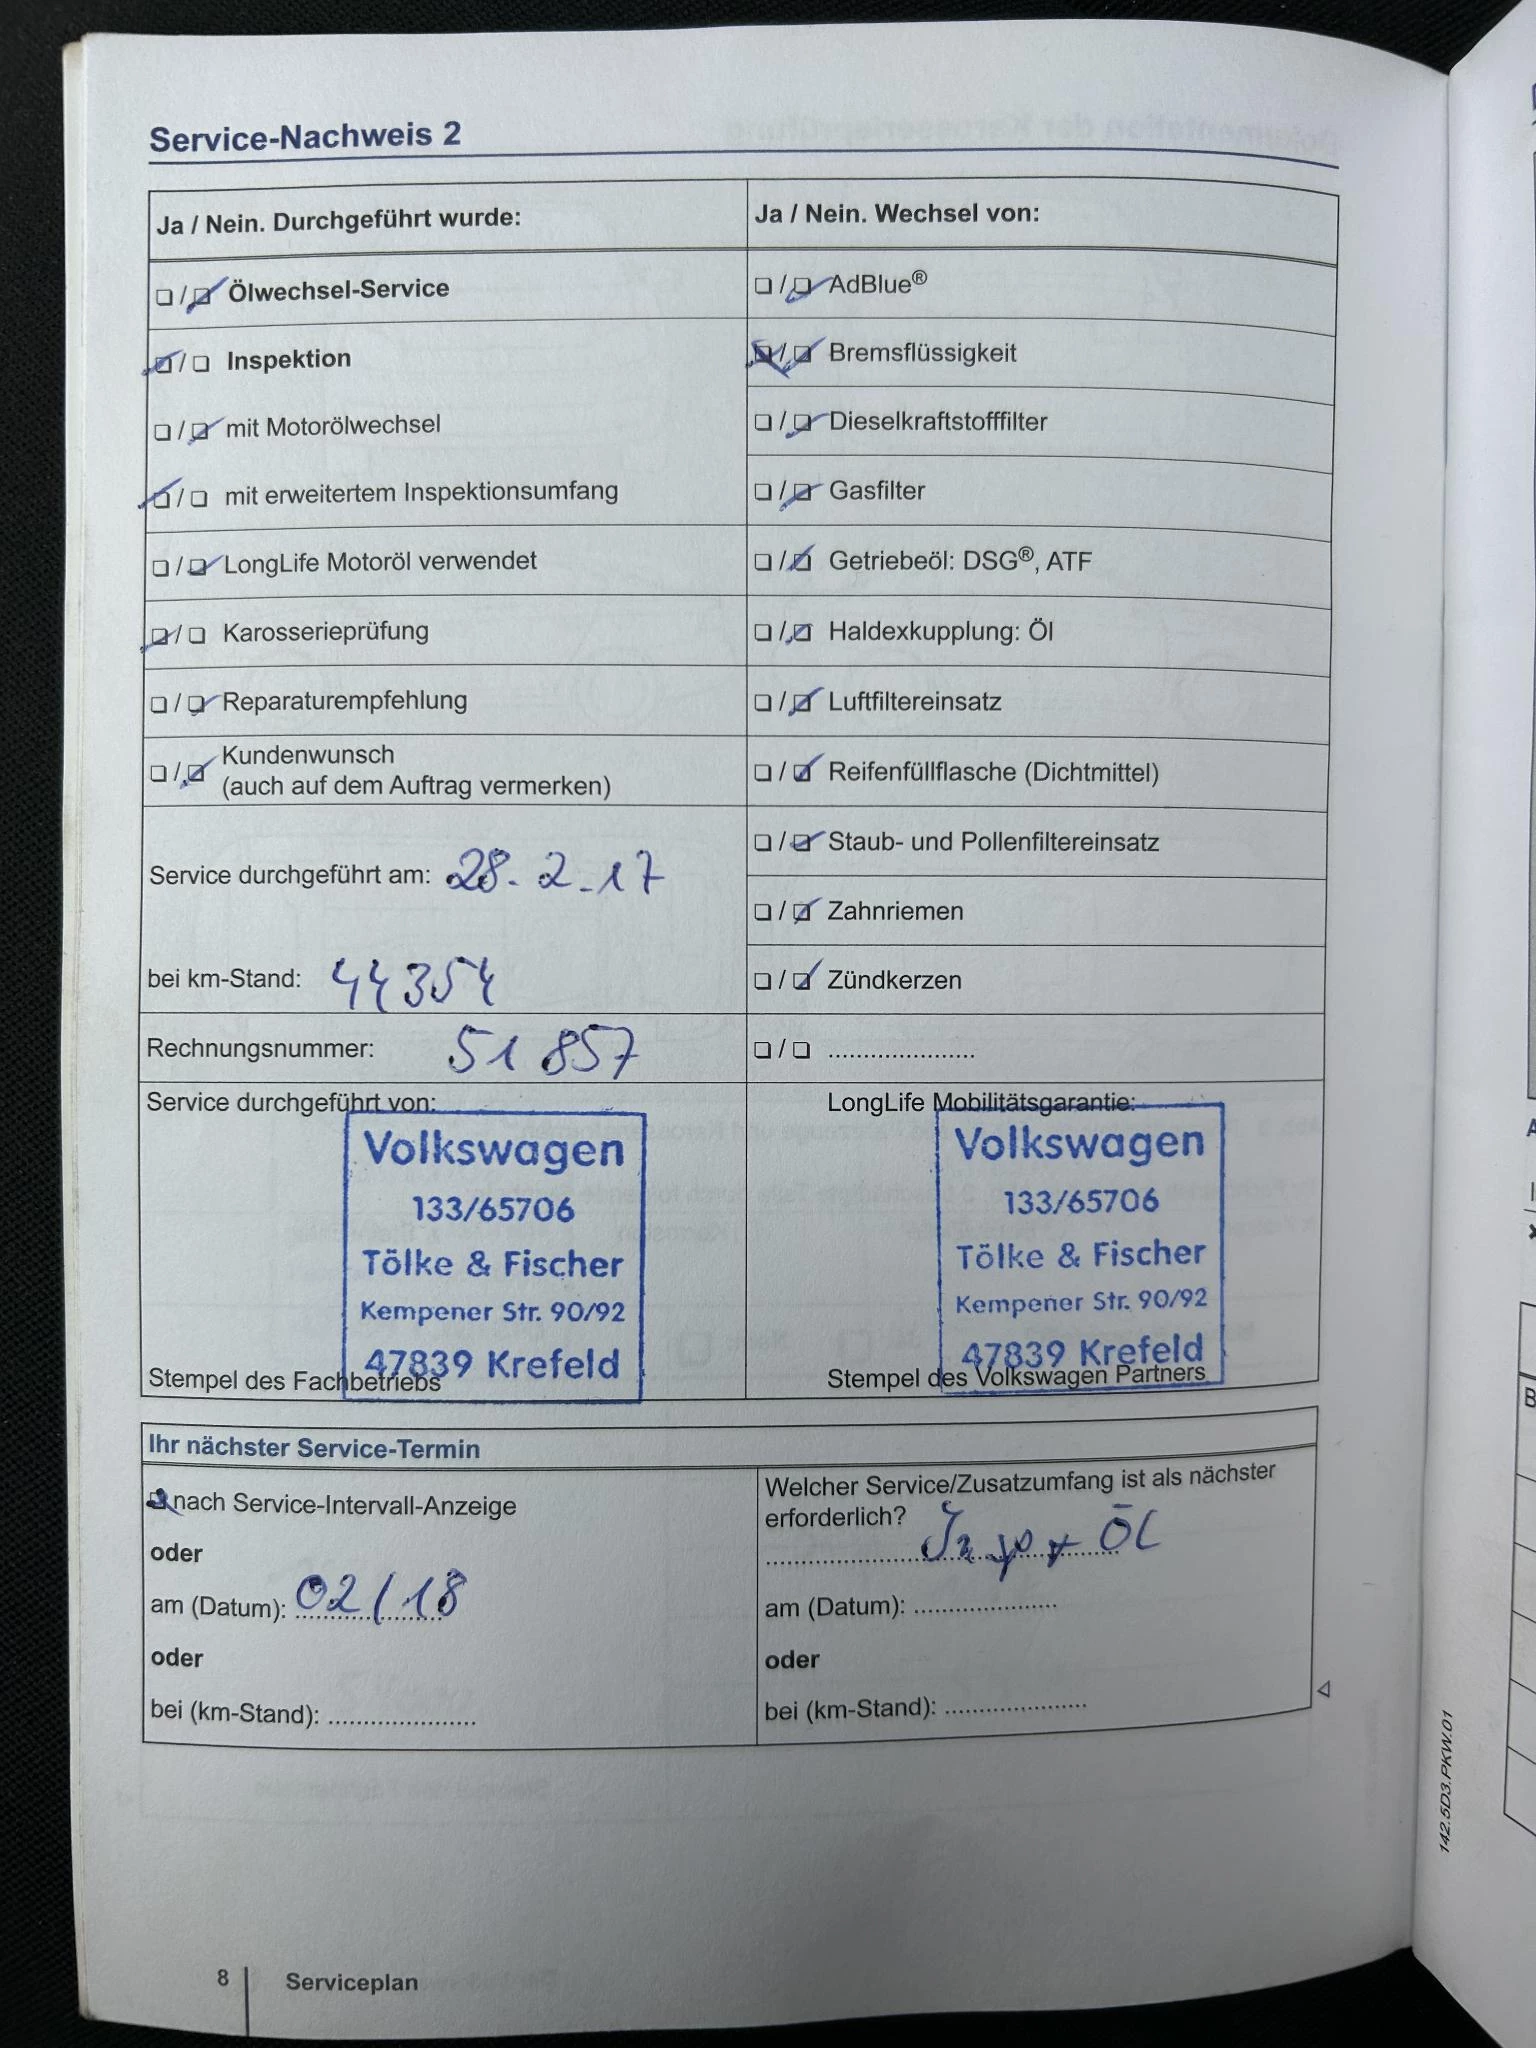 Service-Nachweis 2
Ja / Nein. Durchgeführt wurde:
❏ / ❏ Ölwechsel-Service
❏ / ❏ Inspektion
❏ / ❏ mit Motorölwechsel
❏ / ❏ mit erweitertem Inspektionsumfang
❏ / ❏ LongLife Motoröl verwendet
❏ / ❏ Karosserieprüfung
❏ / ❏ Reparaturempfehlung
❏ / ❏ Kundenwunsch
(auch auf dem Auftrag vermerken)
Service durchgeführt am: 28.2.17
bei km-Stand: 44354
Rechnungsnummer: 51857
Ja / Nein. Wechsel von:
❏ / ❏ AdBlue®
❏ / ❏ Bremsflüssigkeit
❏ / ❏ Dieselkraftstofffilter
❏ / ❏ Gasfilter
❏ / ❏ Getriebeöl: DSG®, ATF
❏ / ❏ Haldexkupplung: Öl
❏ / ❏ Luftfiltereinsatz
❏ / ❏ Reifenfüllflasche (Dichtmittel)
❏ / ❏ Staub- und Pollenfiltereinsatz
❏ / ❏ Zahnriemen
❏ / ❏ Zündkerzen
❏ / ❏ .....................
Service durchgeführt von:
Volkswagen
133/65706
Tölke & Fischer
Kempener Str. 90/92
47839 Krefeld
Stempel des Fachbetriebs
LongLife Mobilitätsgarantie:
Volkswagen
133/65706
Tölke & Fischer
Kempener Str. 90/92
47839 Krefeld
Stempel des Volkswagen Partners
Ihr nächster Service-Termin
❏ nach Service-Intervall-Anzeige
oder
am (Datum): 02/18
oder
bei (km-Stand): .....................
Welcher Service/Zusatzumfang ist als nächster
erforderlich?
Insp + Öl
am (Datum): .....................
oder
bei (km-Stand): .....................
142.5D3.PKW.01
8 Serviceplan